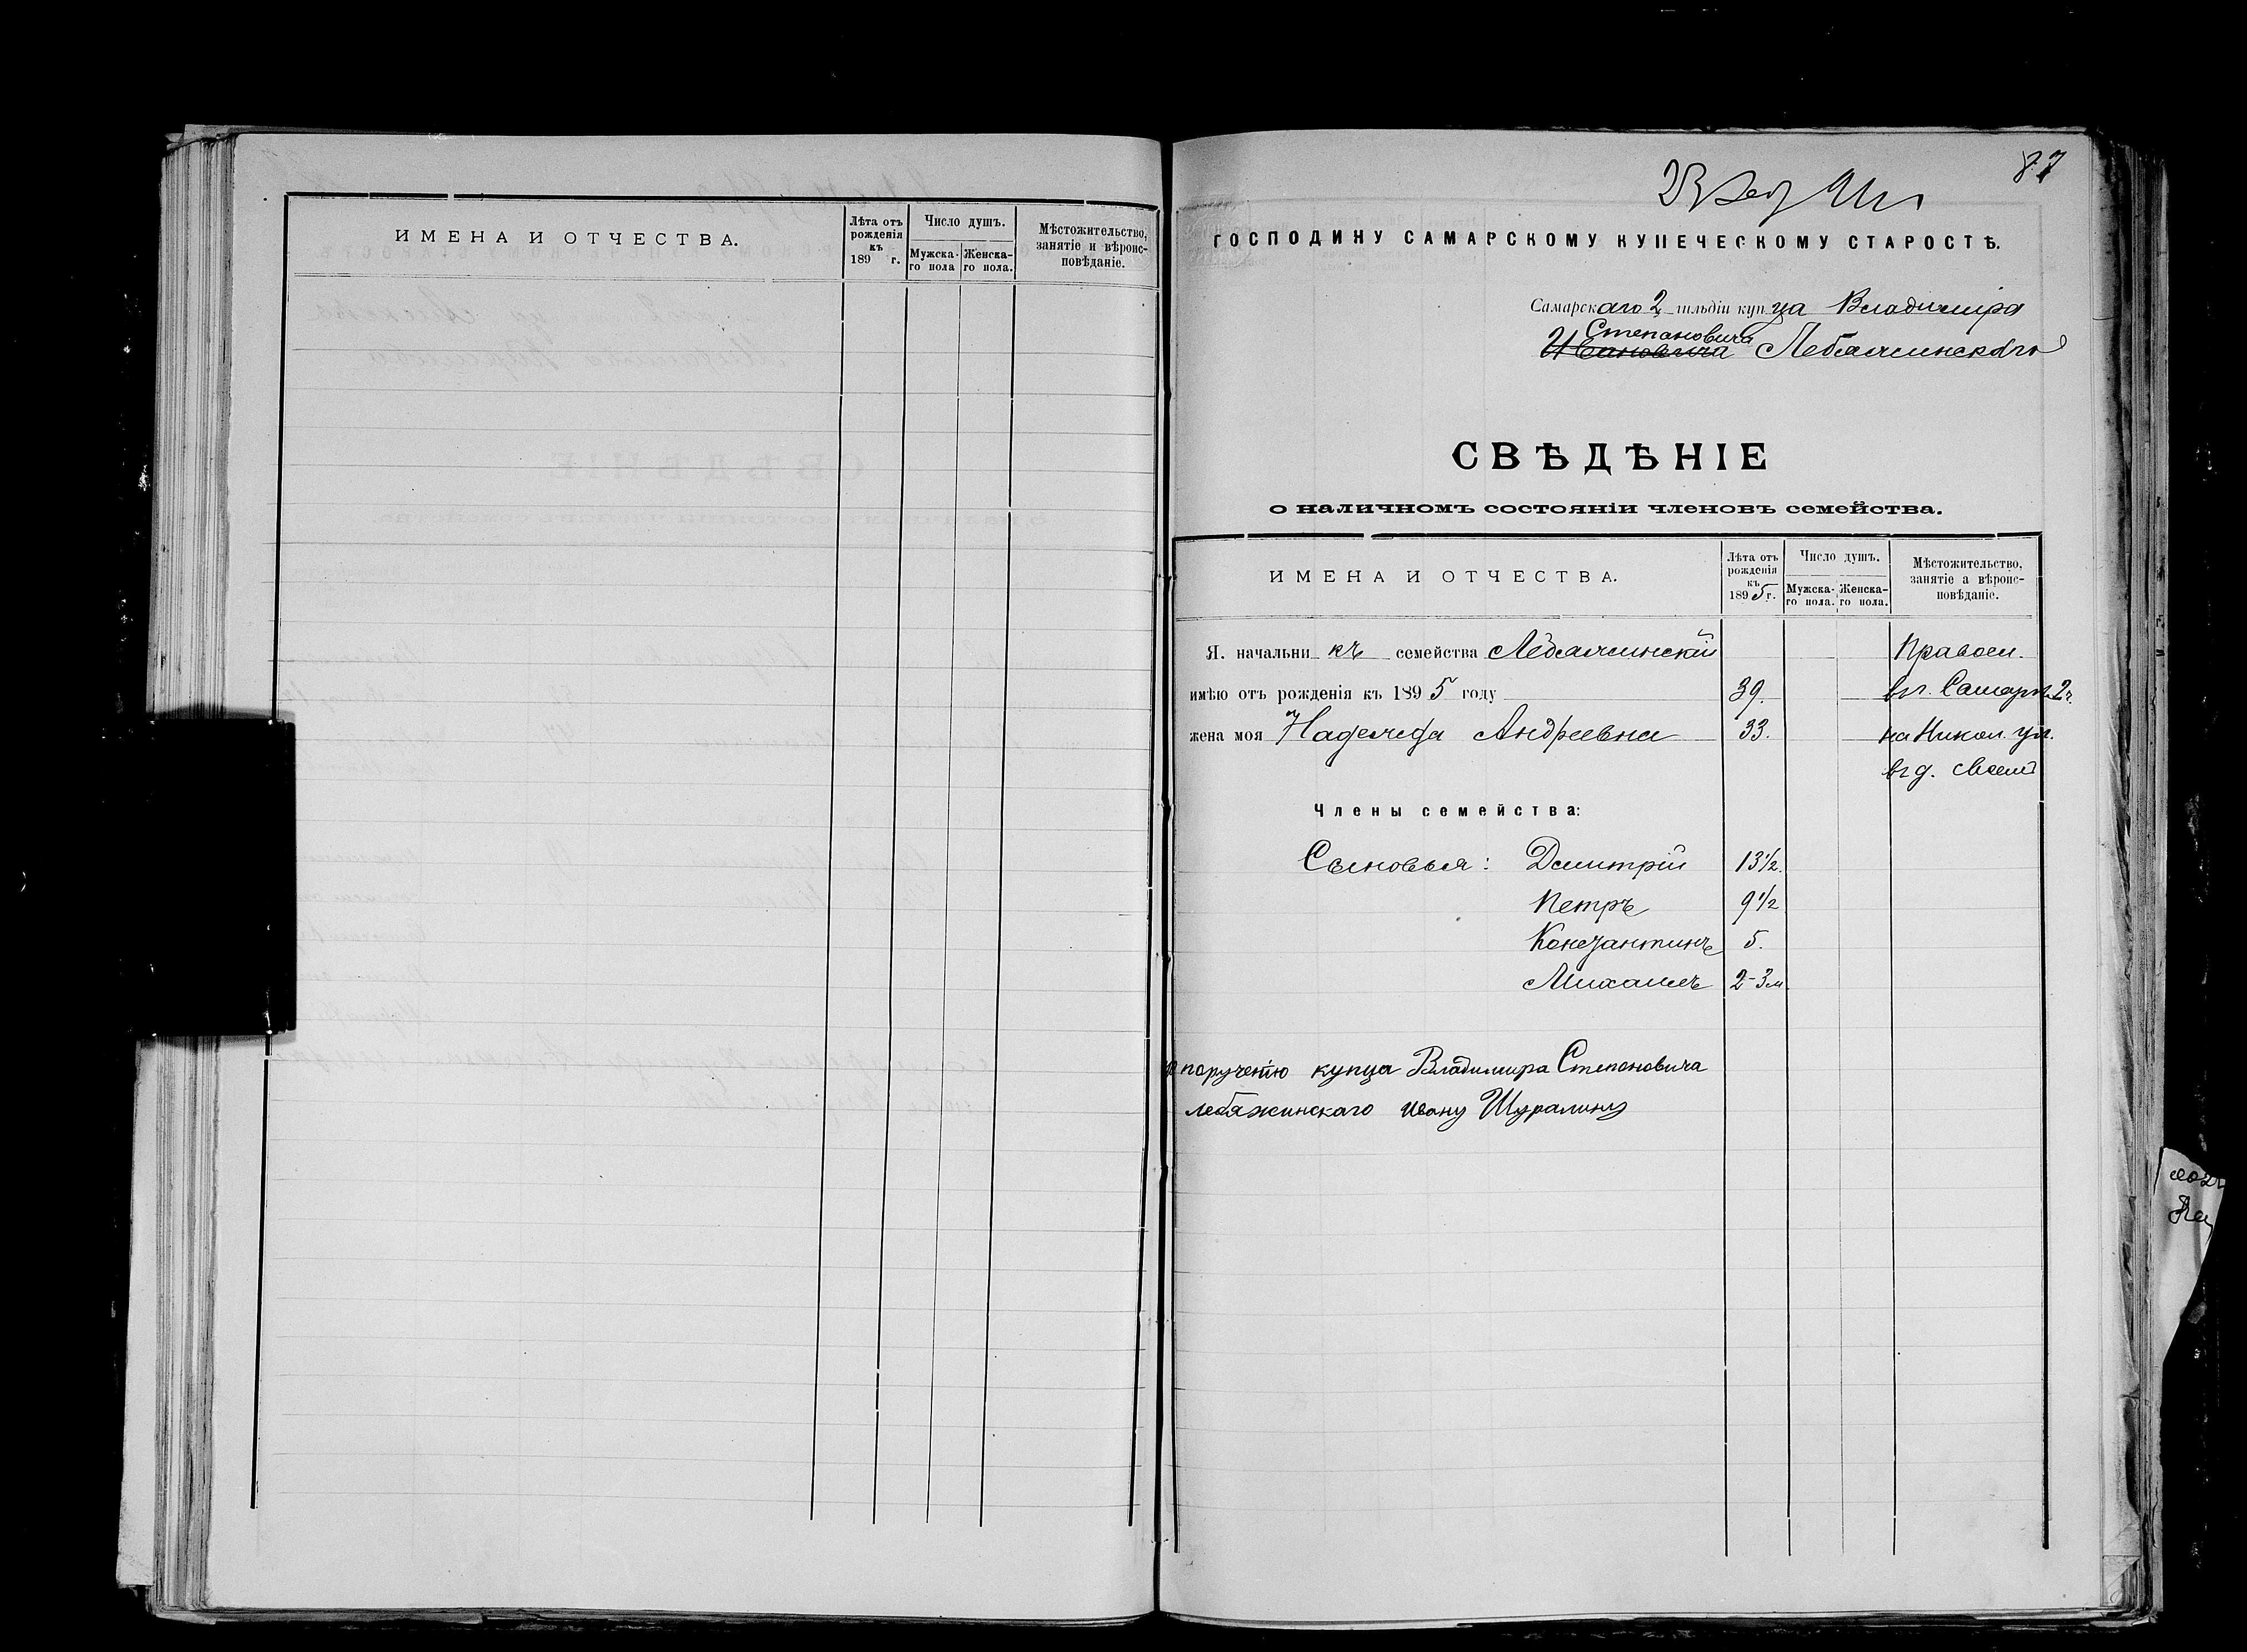 ИМЕНА И ОТЧЕСТВА.
Лѣта отъ рожденія къ 189 г.
Число душъ.
Мужска-го пола
Женска-го пола.
Мѣстожительство, занятіе и вѣроис-повѣданіе.
87
ГОСПОДИНУ САМАРСКОМУ КУПЕЧЕСКОМУ СТАРОСТѢ.
Самарскаго 2 гильдіи купца Владиміра
Степановича
Ивановича Лебяжинскаго
СВѢДѢНІЕ
о наличномъ состояніи членовъ семейства.
ИМЕНА И ОТЧЕСТВА.
Лѣта отъ рожденія къ 1895 г.
Число душъ.
Мужска-го пола.
Женска-го пола.
Мѣстожительство, занятіе а вѣроис-повѣданіе.
Я. начальникъ семейства Лебяжинскій Правосл.
имѣю отъ рожденія къ 1895 году 39. въ г. Самарѣ 2 ч.
жена моя Надежда Андреевна 33. на Никол. ул.
въ д. своемъ
Члены семейства:
Сыновья: Дмитрій 13½.
Петръ 9½
Константинъ 5.
Михаилъ 2-3 м
порученію купца Владимира Степановича
Лебяжинскаго Ивану